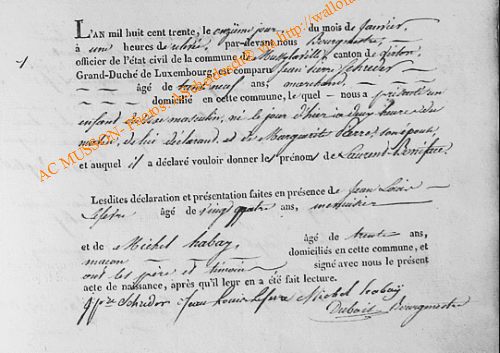 L'AN mil huit cent trente, le onzième jour du mois de Janvier,
à une heures de relevée, par-devant nous Bourgmestre,
officier de l'état civil de la commune de canton de Virton,
Grand-Duché de Luxembourg, est comparu Jean Pierre Schreder
âgé de trente neuf ans, marchand
domicilié en cette commune, le quel nous a présenté un
enfant du sexe masculin, né le jour d'hier à deux heures du
matin, de lui déclarant, et de Marguerite Pierre, son épouse,
et auquel il a déclaré vouloir donner les prénoms de Laurent
Lesdites déclaration et présentation faites en présence de Jean Louis
Lefevre âgé de vingt quatre ans, menuisier
et de Michel habay, âgé de trente ans,
maçon domiciliés en cette commune, et
ont les père et témoins signé avec nous le présent
acte de naissance, après qu'il leur en a été fait lecture.
Schreder Jean Louis Lefevre Michel habay
Bourgmestre
AC MUSSON